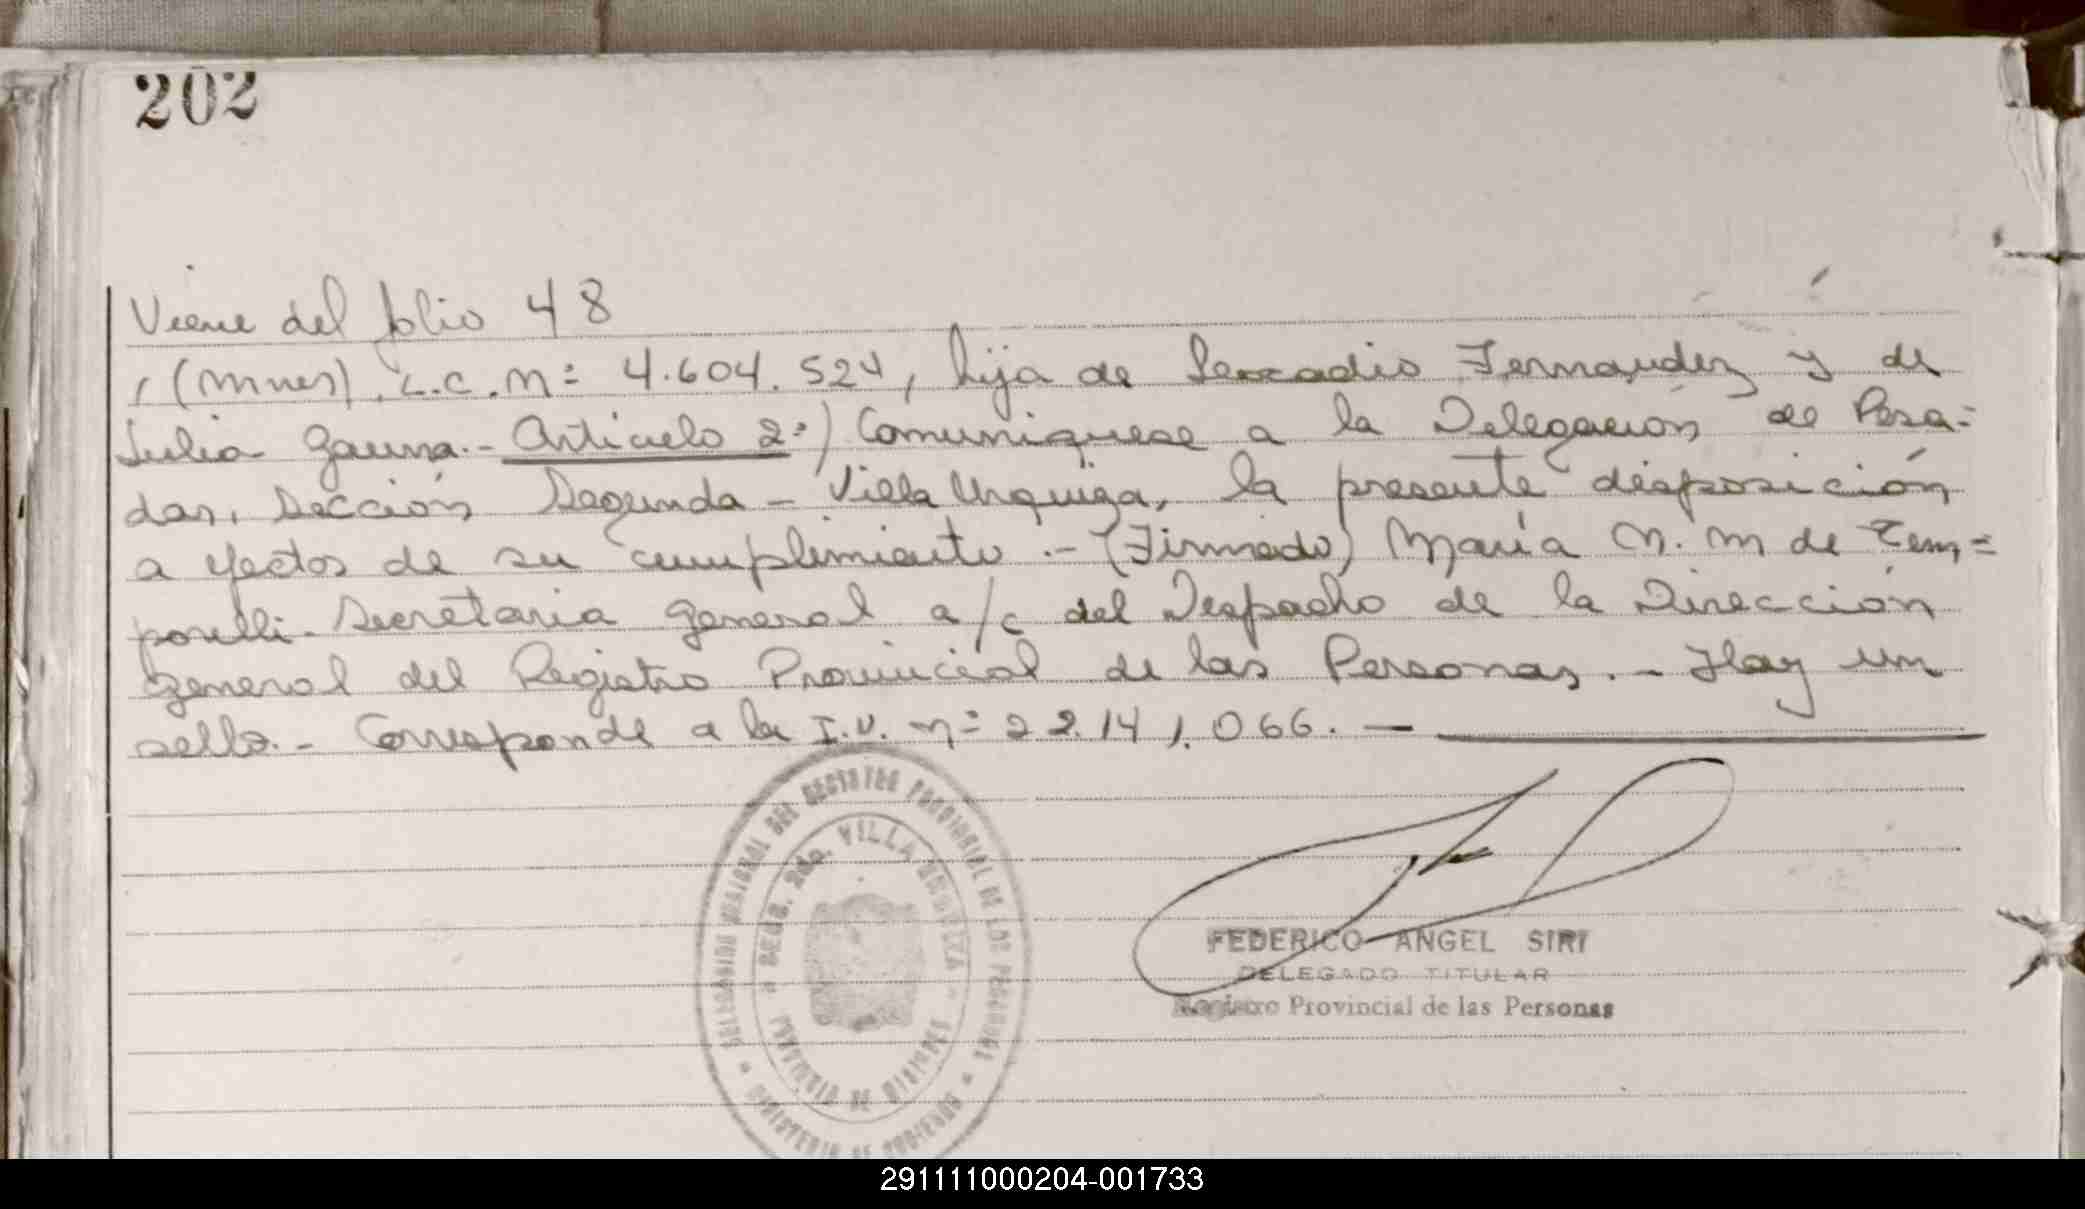 202
Viene del folio 48
, (Mnes), L.C. Nº 4.604.524, hija de Leocadio Fernandez y de
Julia Gauna.- Articulo 2º) Comuniquese a la Delegación de Posa=
das, Sección Segunda - Villa Urquiza, la presente disposición
a efectos de su cumplimiento.- (Firmado) María N. M de Tem=
porelli. Secretaria General a/c del Despacho de la Dirección
General del Registro Provincial de las Personas.- Hay un
sello.- Corresponde a la I.U. nº 22.141.066. —
DEL REGISTRO PROVINCIAL DE LAS PERSONAS
SECC. 2da. VILLA URQUIZA
PROVINCIA DE MISIONES
MINISTERIO DE GOBIERNO
FEDERICO ANGEL SIRI
DELEGADO TITULAR
Registro Provincial de las Personas
291111000204-001733